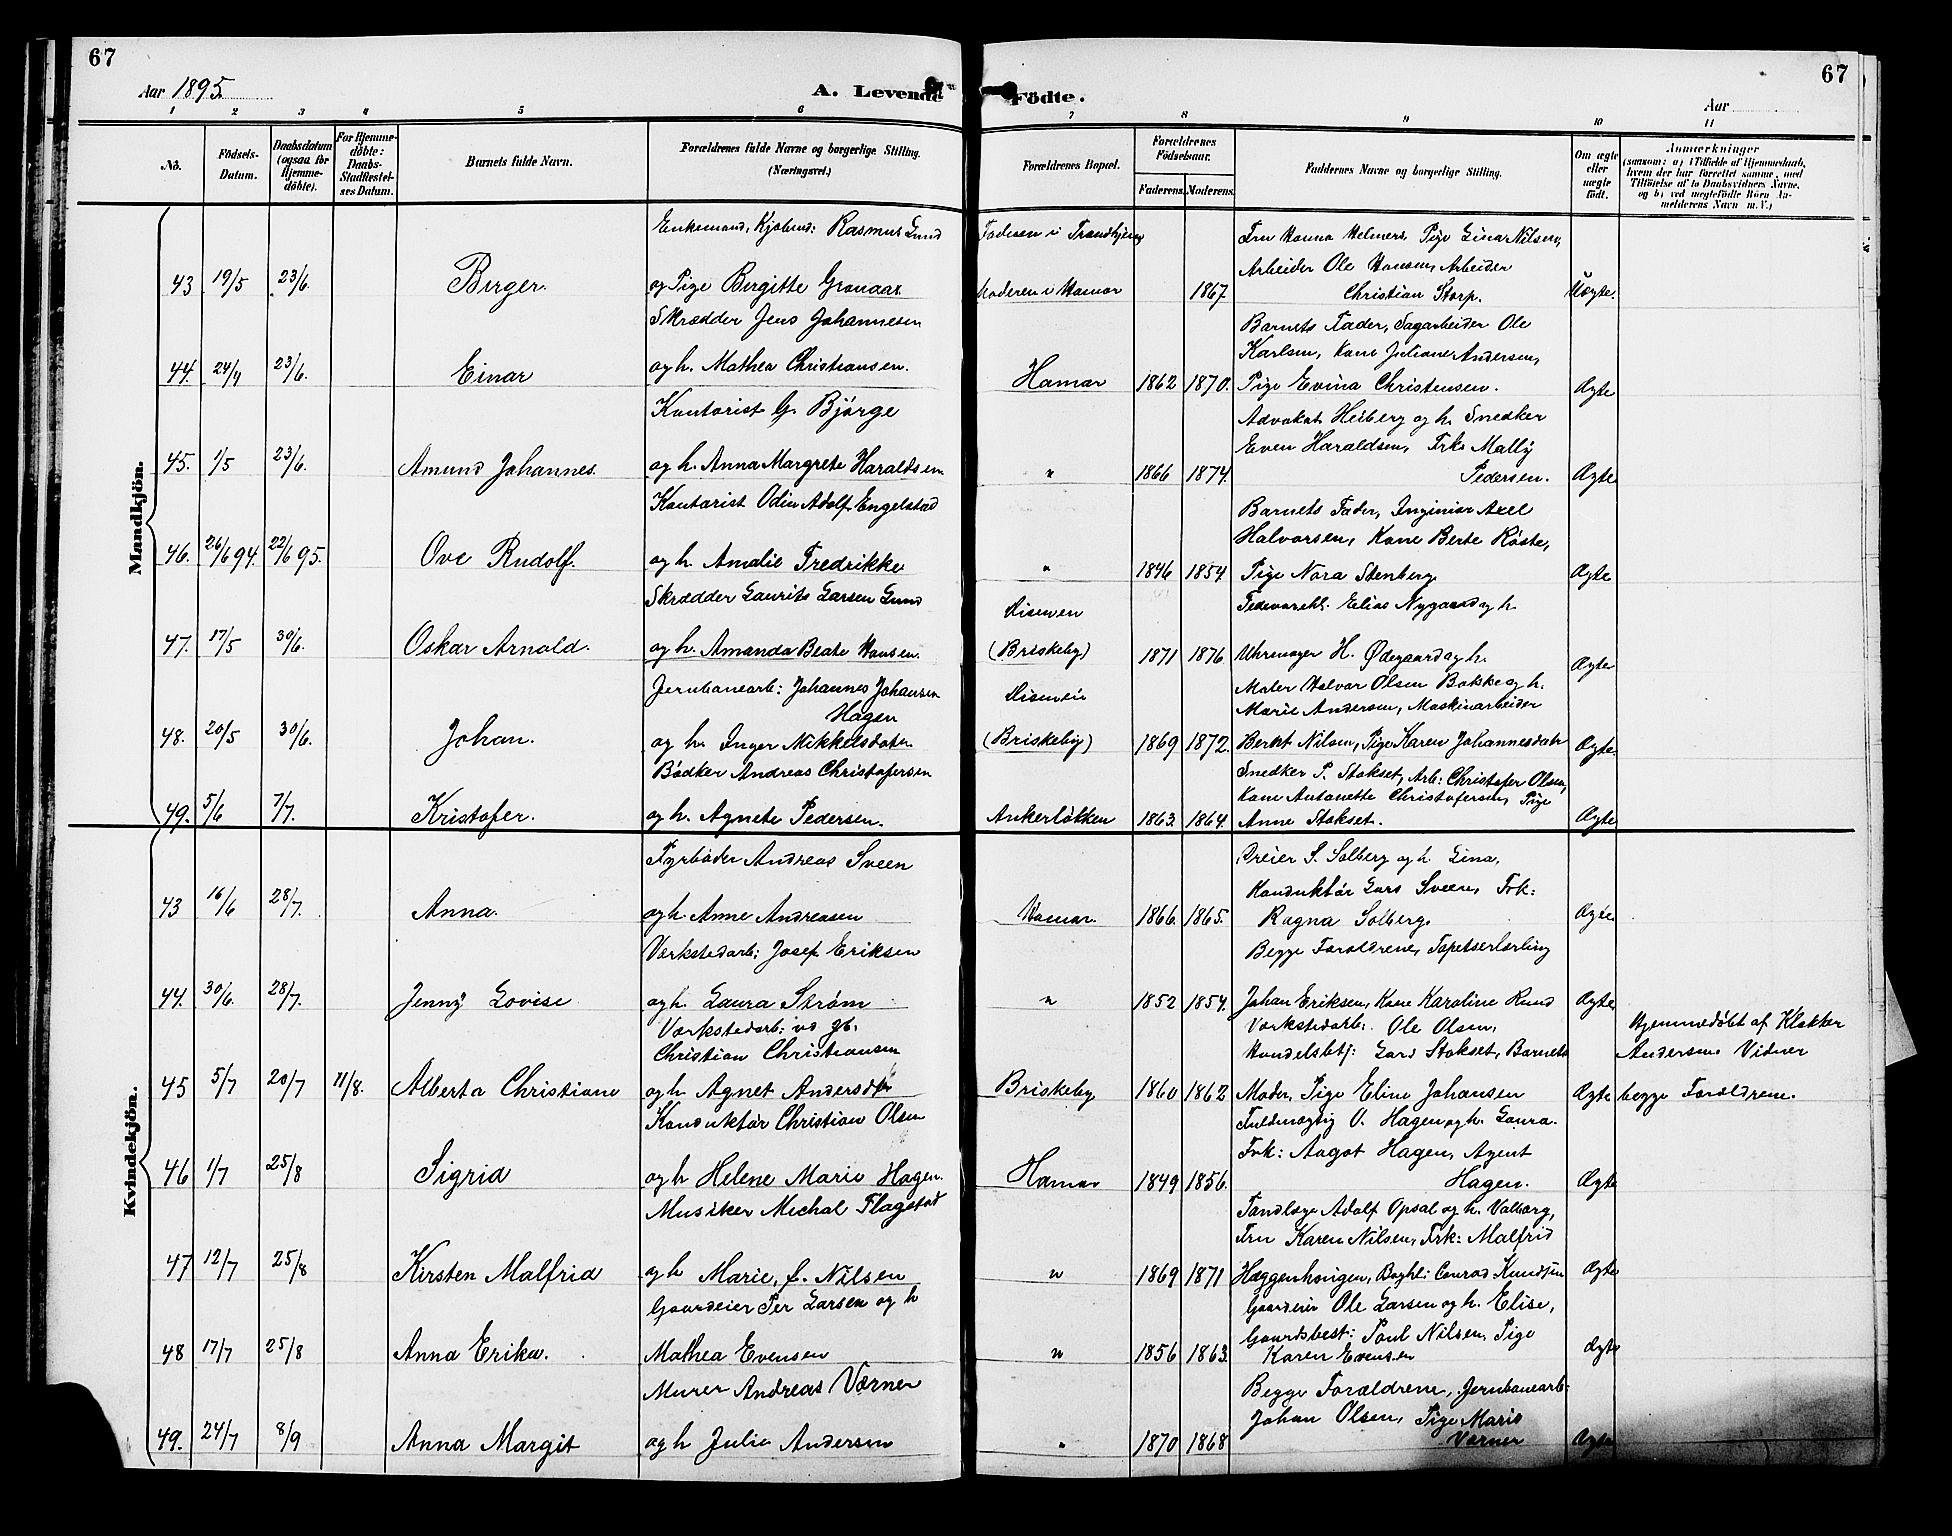 67
67
Aar 1895.
A. Levende
Födte.
Aar
1 2 3 4 5 6 7 8 9 10 11
No.
Födsels-Datum.
Daabsdatum (ogsaa for Hjemme-døbte).
For Hjemme-døbte: Daabs-Stadfæstel-ses Datum.
Barnets fulde Navn.
Forældrenes fulde Navne og borgerlige Stilling. (Næringsvei.)
Forældrenes Bopæl.
Forældrenes Födselsaar.
Faderens. Moderens.
Faddernes Navne og borgerlige Stilling.
Om ægte eller uægte født.
Anmærkninger
(saasom: a) i Tilfælde af Hjemmedaab, hvem der har forrettet samme, med Tilföielse af to Daabsvidners Navne, og b) ved uægtefödte Börn Anmelderens Navn m. V.)
Mandkjön.
Enkemand, Kjøbmd: Rasmus Lund
Faderen i Trondhjem
Fru Hanna Helmers, Pige Lina Nilsen,
Arbeider Ole Hansen, Arbeider
43 19/5 23/6. Birger. og Pige Birgitte Granaas
Moderen i Hamar 1867. Christian Storp. Uægte.
Skrædder Jens Johannesen
Barnets Fader, Sagarbeider Ole
Karlsen, Kone Juliane Andersen,
44. 24/4 23/6. Einar og h. Mathea Christiansen.
Hamar 1862 1870. Pige Evina Christensen. Ægte
Kontorist G. Bjørge
Advokat Heiberg og h. Snedker
Even Haraldsen, Frk. Mally
45. 1/5 23/6. Amund Johannes. og h. Anna Margrete Haraldsen.
" 1866 1874. Pedersen. Ægte
Kontorist Odin Adolf Engelstad
Barnets Fader, Inginiør Axel
Halvorsen, Kone Berte Røste,
46. 26/6 94. 22/6 95. Ove Rudolf. og h. Amalie Fredrikke
" 1846 1854 Pige Nora Stenberg. Ægte
Skrædder Laurits Larsen Lund
Disenven
Fedevarehl. Elias Nygaard og h.
47. 17/5 30/6. Oskar Arnold. og h. Amanda Beate Hansen.
(Briskeby) 1871 1876 Uhrmager H. Ødegaard og h. Ægte
Jernbanearb: Johannes Johansen
Hagen
Disenvei
Maler Halvor Olsen Bakke og h.
Marie Andersen, Maskinarbeider
48. 20/5 30/6. Johan. og h. Inger Mikkelsdater
(Briskeby) 1869 1872. Bernt Nilsen, Pige Karen Johannesdatr Ægte
Bødker Andreas Christofersen
Snedker P. Stokset, Arb: Christofer Olsen,
Kone Antonette Christofersen, Pige
49. 5/6 7/7. Kristofer. og h. Agnete Pedersen.
Ankerløkken 1863. 1864. Anne Stokset. Ægte
Kvindekjön.
Fyrbøder Andreas Sveen
Dreier S. Solberg og h. Lina,
Konduktør Lars Sveen, Frk:
43 16/6 28/7. Anna. og h. Anne Andreasen
Hamar. 1866. 1865. Ragna Solberg. Ægte
Værkstedarb: Josef Eriksen
Begge Forældrene, Tapetserlærling
44. 30/6. 28/7. Jenny Lovise og h. Laura Strøm
" 1852 1854. Johan Eriksen, Kone Karoline Rund Ægte
Værkstedarb: vd gb.
Christian Christiansen
Værkstedarb. Ole Olsen,
Handelsbetj: Lars Stokset, Barnets
Hjemmedøbt af Klokker
Andersen. Vidner
45 5/7 20/7 11/8. Alberta Christiane og h Agnet Andersdtr
Briskeby 1860 1862 Moder, Pige Eline Johansen Ægte begge Forældrene.
Konduktør Christian Olsen
Fuldmægtig O. Hagen og h. Laura.
Frk: Aagot Hagen, Agent
46 1/7 25/8 Sigrid og h Helene Marie Hagen.
Hamar 1849 1856. Hagen. Ægte
Musiker Michal Flagstad
Tandlæge Adolf Opsal og h. Valborg,
Fru Karen Nilsen, Frk: Malfrid
47 12/7 25/8 Kirsten Malfrid og h Marie, f. Nilsen
" 1869 1871 Hæggenhougen, Boghl: Conrad Knudsen Ægte
Gaardeier Per Larsen og h
Gaardeier Ole Larsen og h. Elise,
Gaardsbest: Paul Nilsen, Pige
48 17/7 25/8 Anna Erika. Mathea Evensen
" 1856 1863. Karen Evensen Ægte
Murer Andreas Værner
Begge Forældrene, Jernbanearb.
Johan Olsen, Pige Marie
49. 24/7 8/9 Anna Margit og h Julie Andersen
" 1870 1868 Værner Ægte